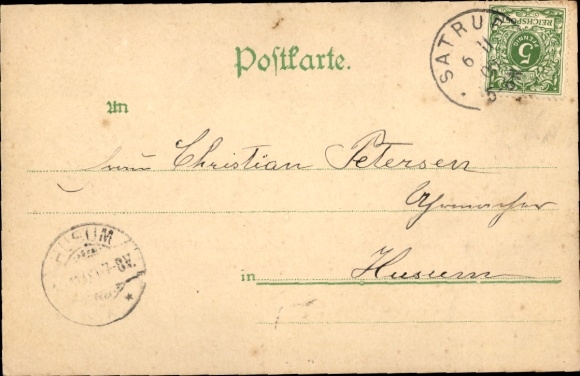 SATRUP
6 11
REICHSPOST
5
PFENNIG
Postkarte.
An
Christian Petersen
Uhrmacher
HUSUM
in Husum